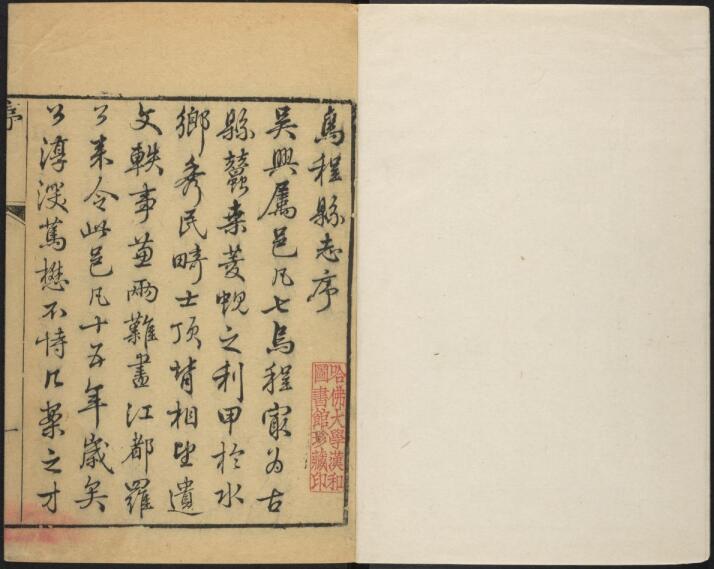 烏程縣志序
吳興屬邑凡七烏程㝡為古
縣蠶桒菱蜆之利甲於水
鄉秀民畸士頂背相望遺
文軼事兩難盡江都羅
公来令此邑凡十五年歲矣
公淳淡篤懋不恃几案之才
序
一
哈佛大學漢和
圖書館珍藏印